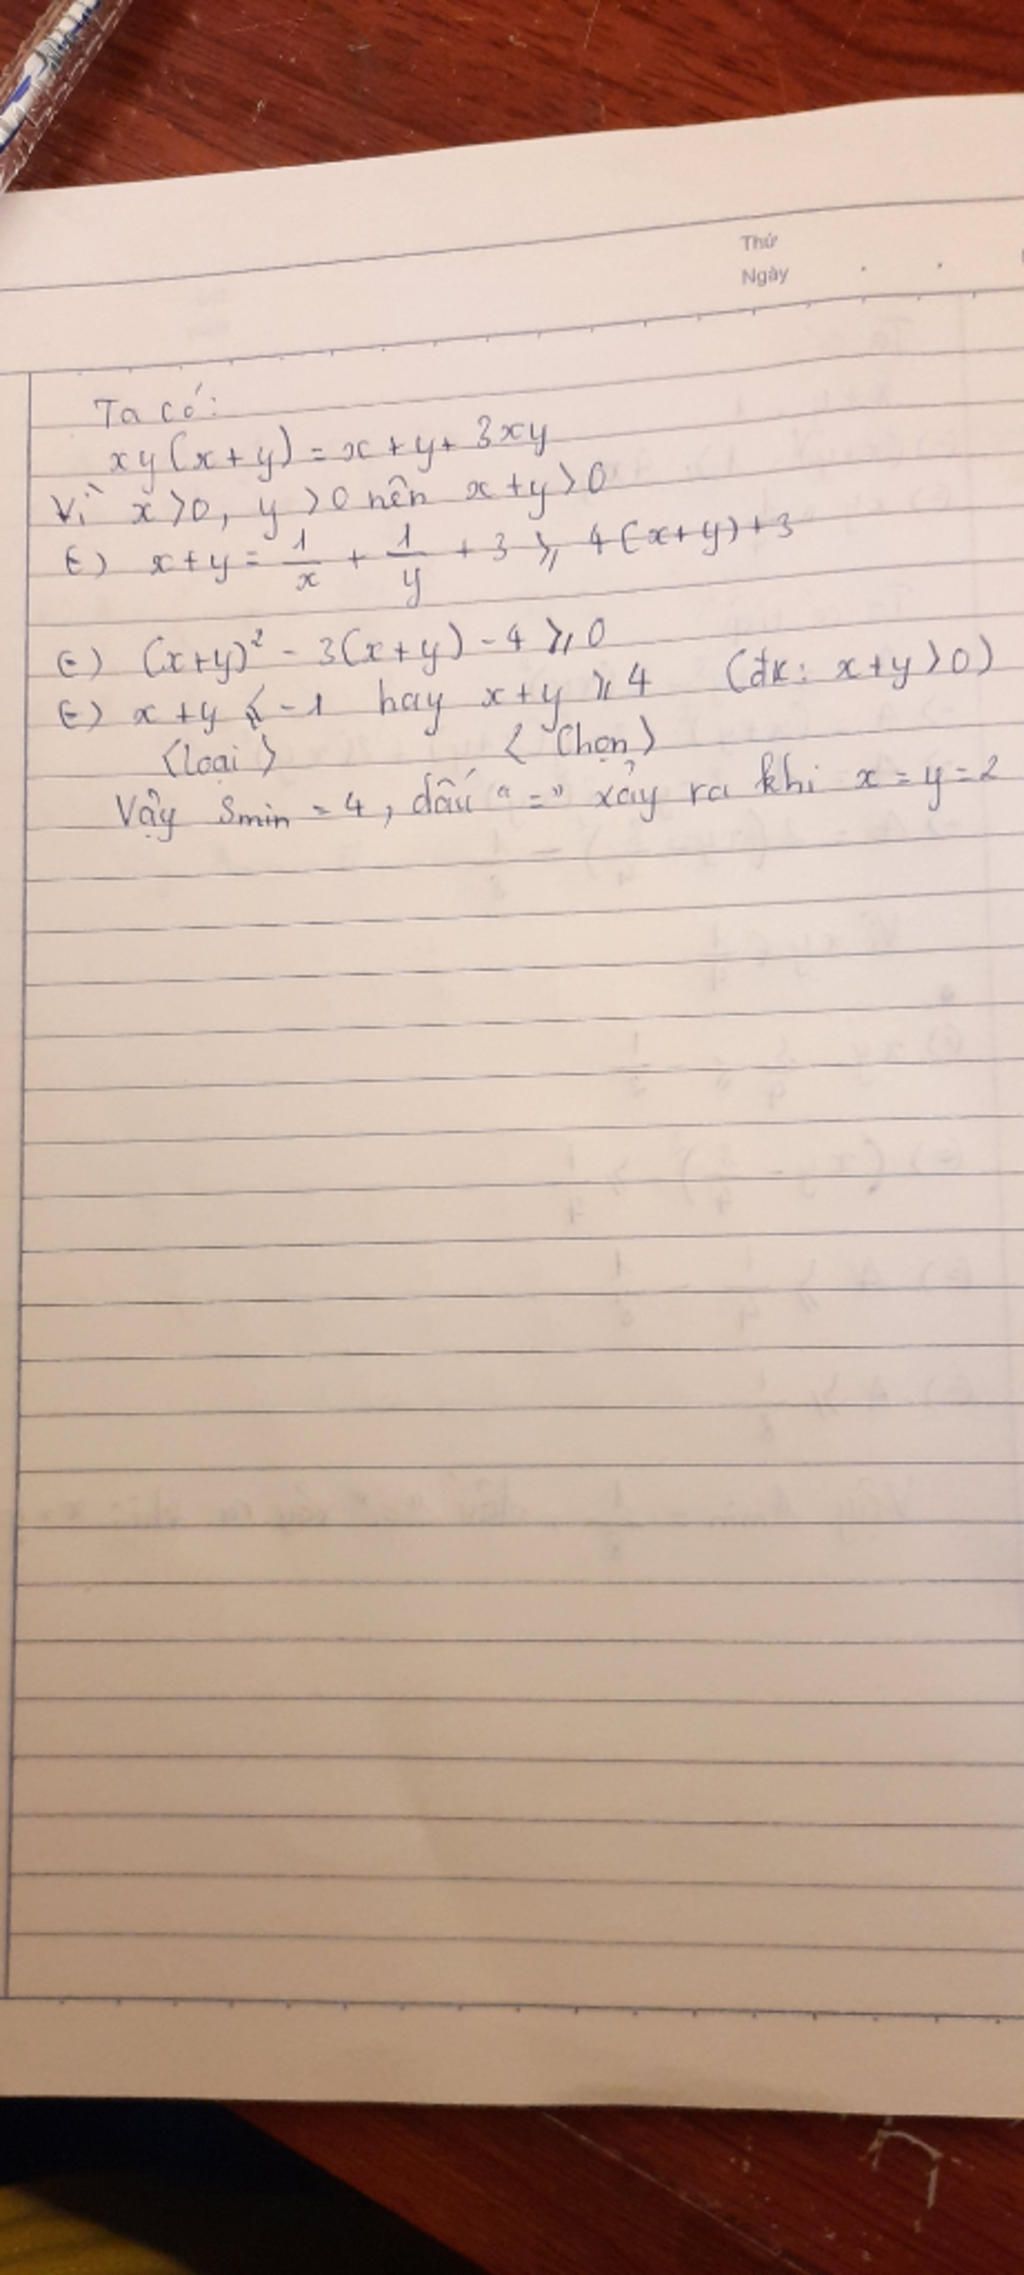 Thứ
Ngày
Ta có:
xy(x+y) = x+y+3xy
Vì x>0, y>0 nên x+y>0
(-) x+y = 1/x + 1/y + 3 ⩾ 4(x+y)+3
(-) (x+y)² - 3(x+y) - 4 ⩾ 0
(-) x+y ⩽ -1 hay x+y ⩾ 4 (đk: x+y>0)
<loại> <Chọn>
Vậy Smin = 4, dấu "=" xảy ra khi x=y=2